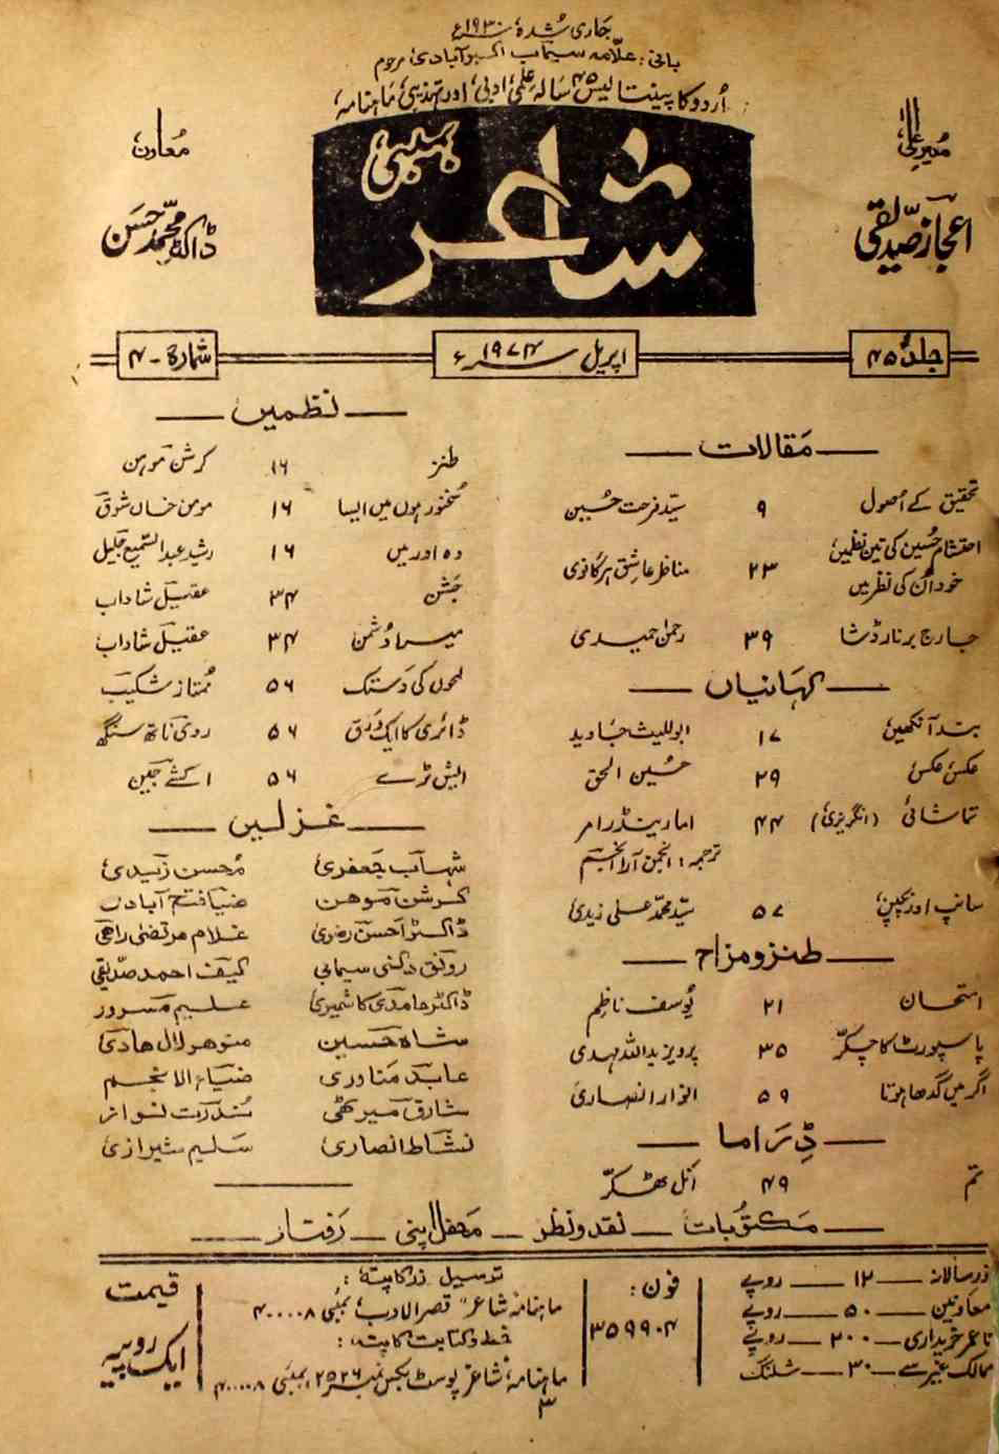 جاری شدہ ۱۹۳۰ء
بانی: علّامہ سیماب اکبرآبادی مرحوم
اُردو کا پینتالیس ۴۵ سالہ علمی، ادبی، اور تہذیبی، ماہنامہ
مدیرِ اعلیٰ
اعجاز صدّیقی
شاعر
بمبئی
معاون
ڈاکٹر محمد حسن
جلد ۴۵
اپریل ۱۹۷۴ء
شمارہ - ۴
مقالات
تحقیق کے اصول ۹ سیّد فرحت حسین
احتشام حسین کی تین نظمیں
خود اُن کی نظر میں ۲۳ مناظر عاشق ہرگانوی
جارج برنارڈ شا ۳۹ رحمٰن حمیدی
کہانیاں
بند آنکھیں ۱۷ ابواللیث جاوید
عکس عکس ۲۹ حُسین الحق
تماشائی (انگریزی) ۴۴ امارینڈرامر
ترجمہ: انجمن آرا انجم
سانپ اور بچپن ۵۷ سیّد محمد علی زیدی
طنز و مزاح
امتحان ۲۱ یُوسف ناظم
پاسپورٹ کا چکّر ۳۵ پرویز یداللہ مہدی
اگر میں گدھا ہوتا ۵۹ انوار انصاری
ڈراما
تم ۴۹ انل ٹھکّر
نظمیں
طنز ۱۶ کرشن موہن
سُخنور ہوں میں ایسا ۱۶ مومن خاں شوق
وہ اور میں ۱۶ رشید عبدالسّمیع جلیل
جشن ۳۴ عقیل شاداب
میرا دُشمن ۳۴ عقیل شاداب
لمحوں کی دستک ۵۶ مُمتاز شکیب
ڈائری کا ایک ورق ۵۶ روی ناتھ سنگھ
ایش ٹرے ۵۶ اکشے جین
غزلیں
شہاب جعفری محسن زیدی
کرشن موہن ضیا فتح آبادی
ڈاکٹر احسن رضوی غلام مرتضیٰ راہی
رونق دکنی سیمابی کیف احمد صدّیقی
ڈاکٹر حامدی کاشمیری علیم مسرور
شاہ حسین منوہر لال ہادی
عابد مناوری ضیاء الانجم
شارق میرٹھی نُدرت نواز
نشاط انصاری سلیم شیرازی
مکتوبات — نقد و نظر — محفل اپنی — رفتار
زر سالانہ — ۱۲ — روپے
معاونین — ۵۰ — روپے
تاعمر خریداری — ۲۰۰ — روپے
ممالک غیر سے — ۳۰ — شلنگ
فون:
۳۵۹۹۰۴
ترسیل زر کا پتہ:
ماہنامہ شاعر، قصرالادب، بمبئی ۴۰۰۰۰۸
خط و کتابت کا پتہ:
ماہنامہ شاعر پوسٹ بکس نمبر ۲۵۲۶، بمبئی ۴۰۰۰۰۸
قیمت
ایک روپیہ
۳